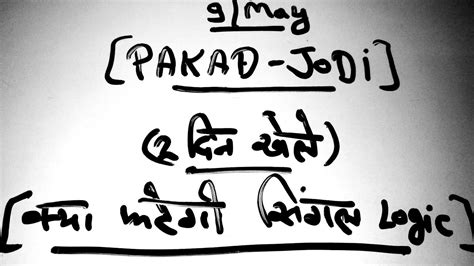 9/May
[PAKAD-JODI]
(2 दिन खेले)
[क्या फटेगी सिंगल Logic]